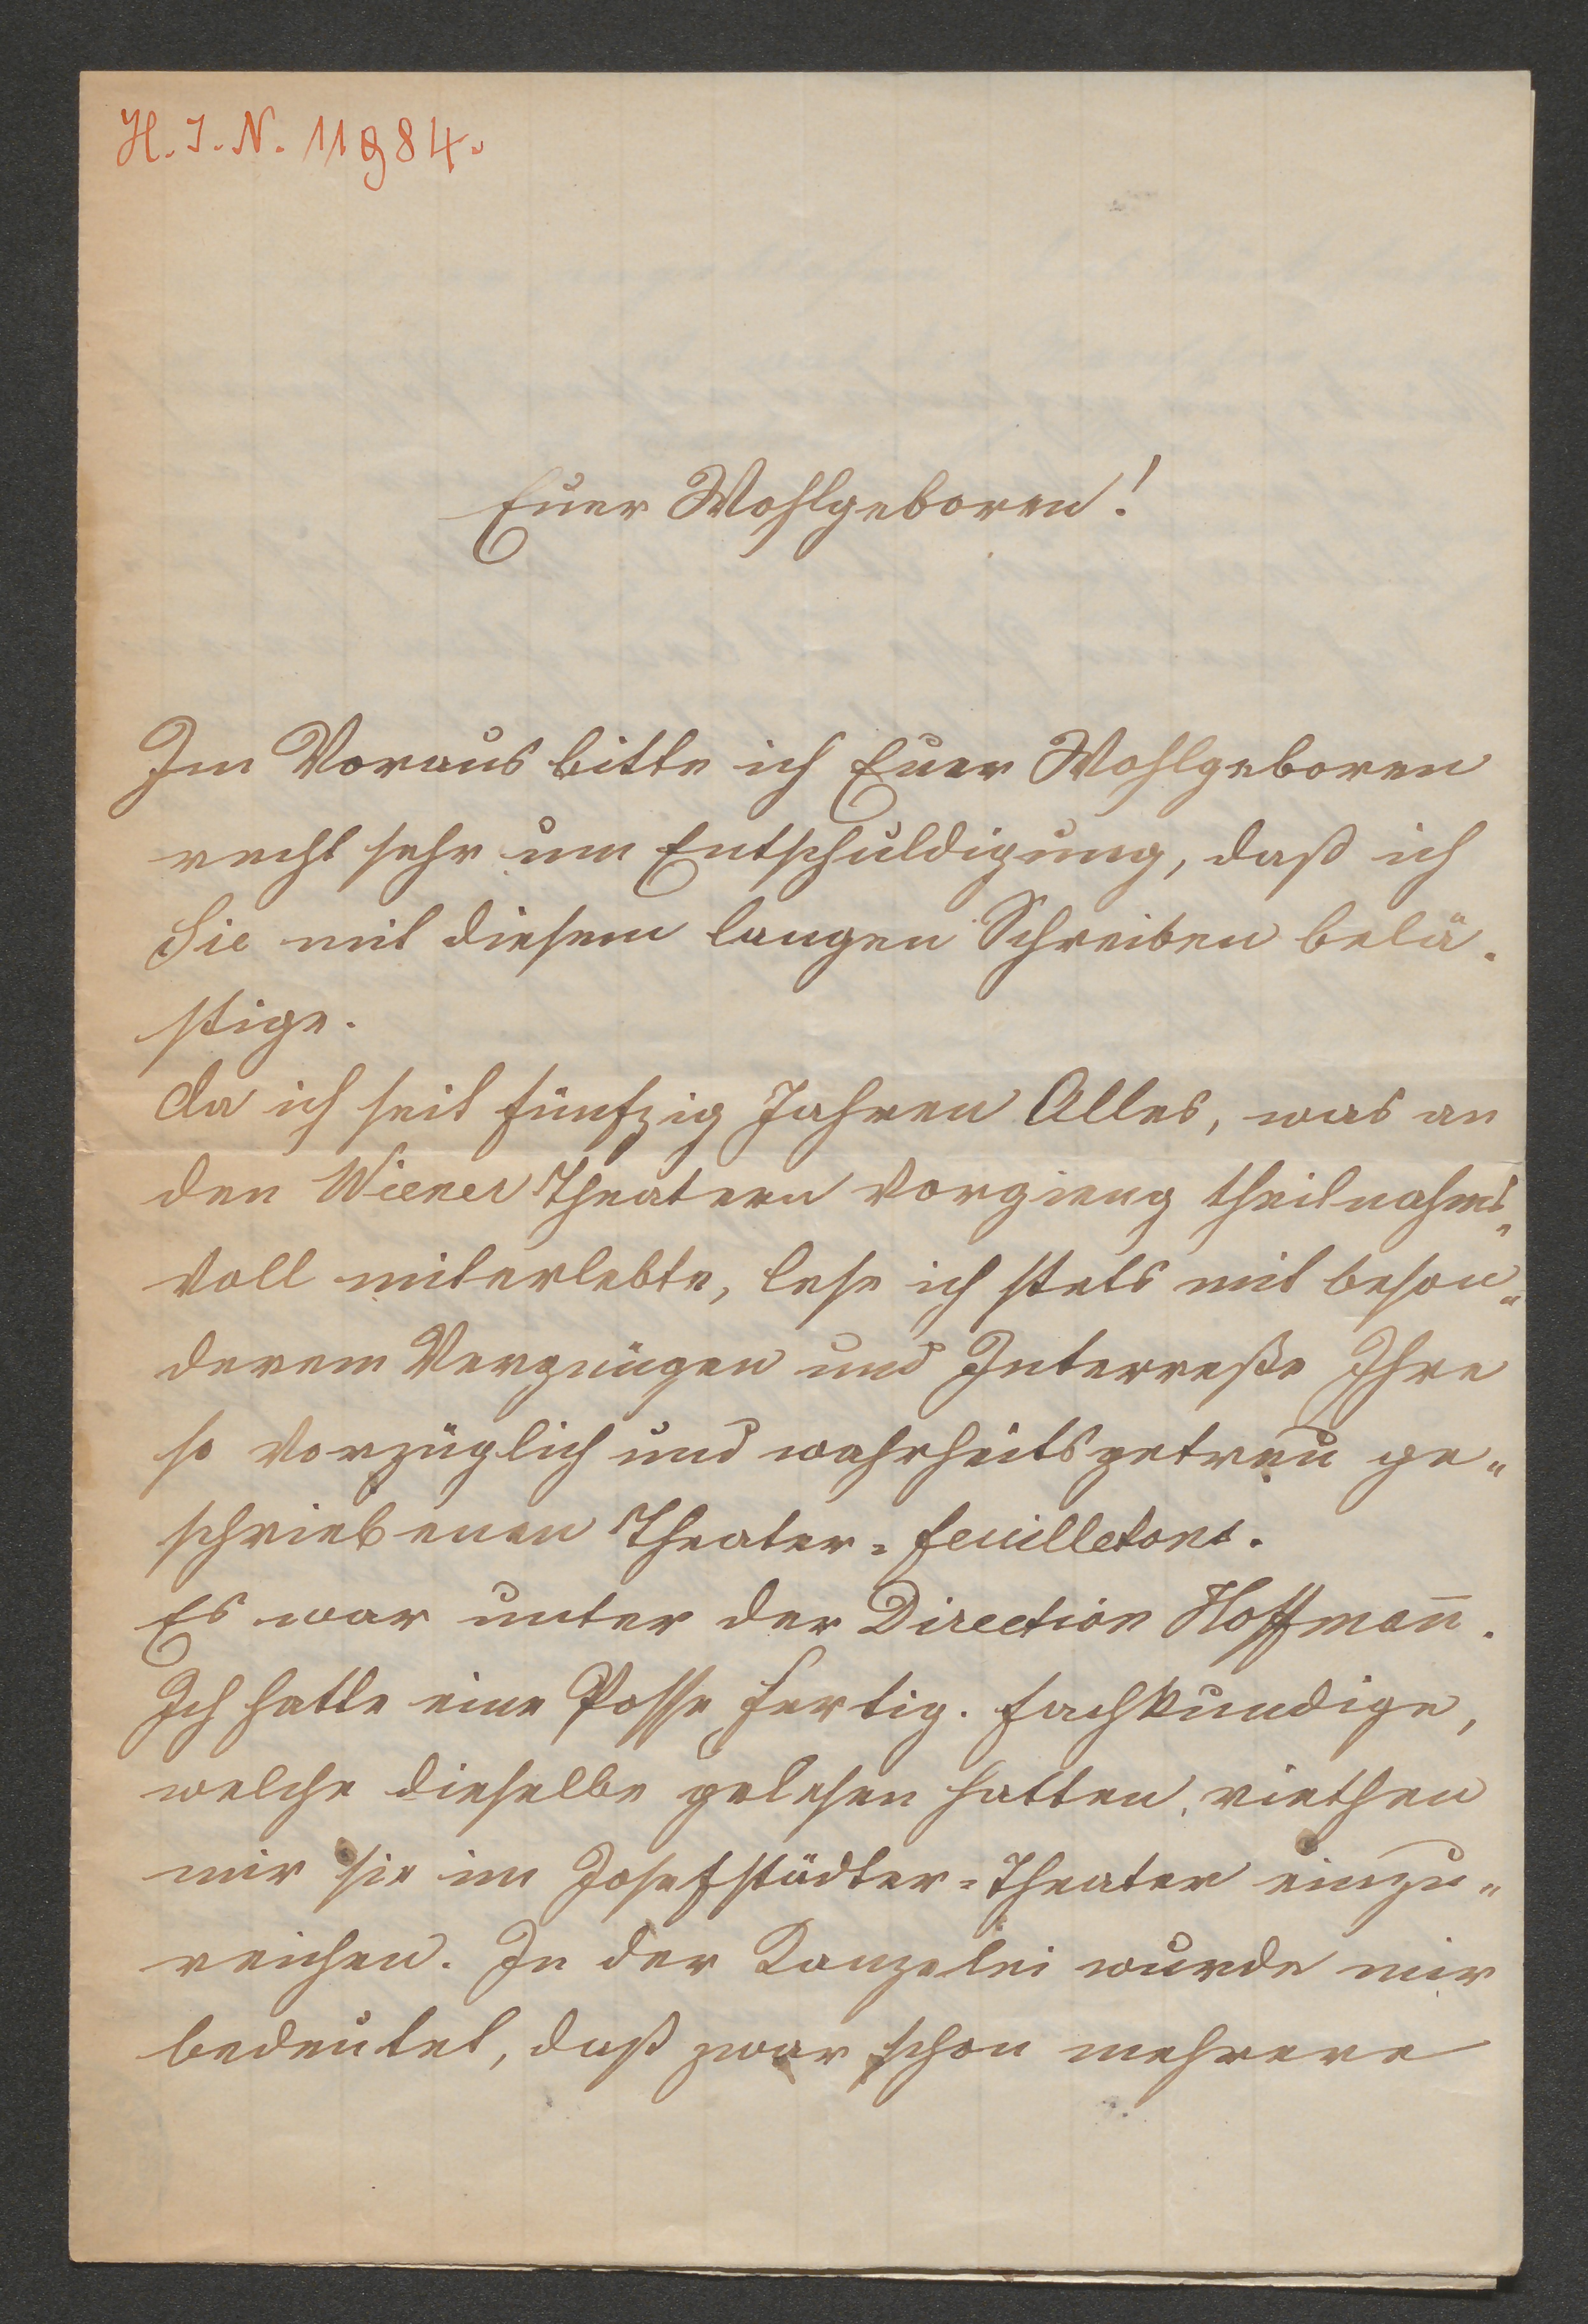 H. I. N. 11984.
Euer Wohlgeboren!
Im Voraus bitte ich Euer Wohlgeboren
recht sehr um Entschuldigung, daß ich
Sie mit diesem langen Schreiben belä-
stige.
Da ich seit fünfzig Jahren Alles, was an
den Wiener Theatern vorgieng theilnahms„
voll miterlebte, lese ich stets mit beson„
derem Vergnügen und Interreße Ihre
so vorzüglich und wahrheitsgetreu ge„
schriebenen Theater-Feuilletons.
Es war unter der Direction Hoffman̅.
Ich hatte eine Posse fertig. Fachkundige,
welche dieselbe gelesen hatten, riethen
mir sie im Josefstädter-Theater einzu„
reichen. In der Kanzelei wurde mir
bedeutet, daß zwar schon mehrere